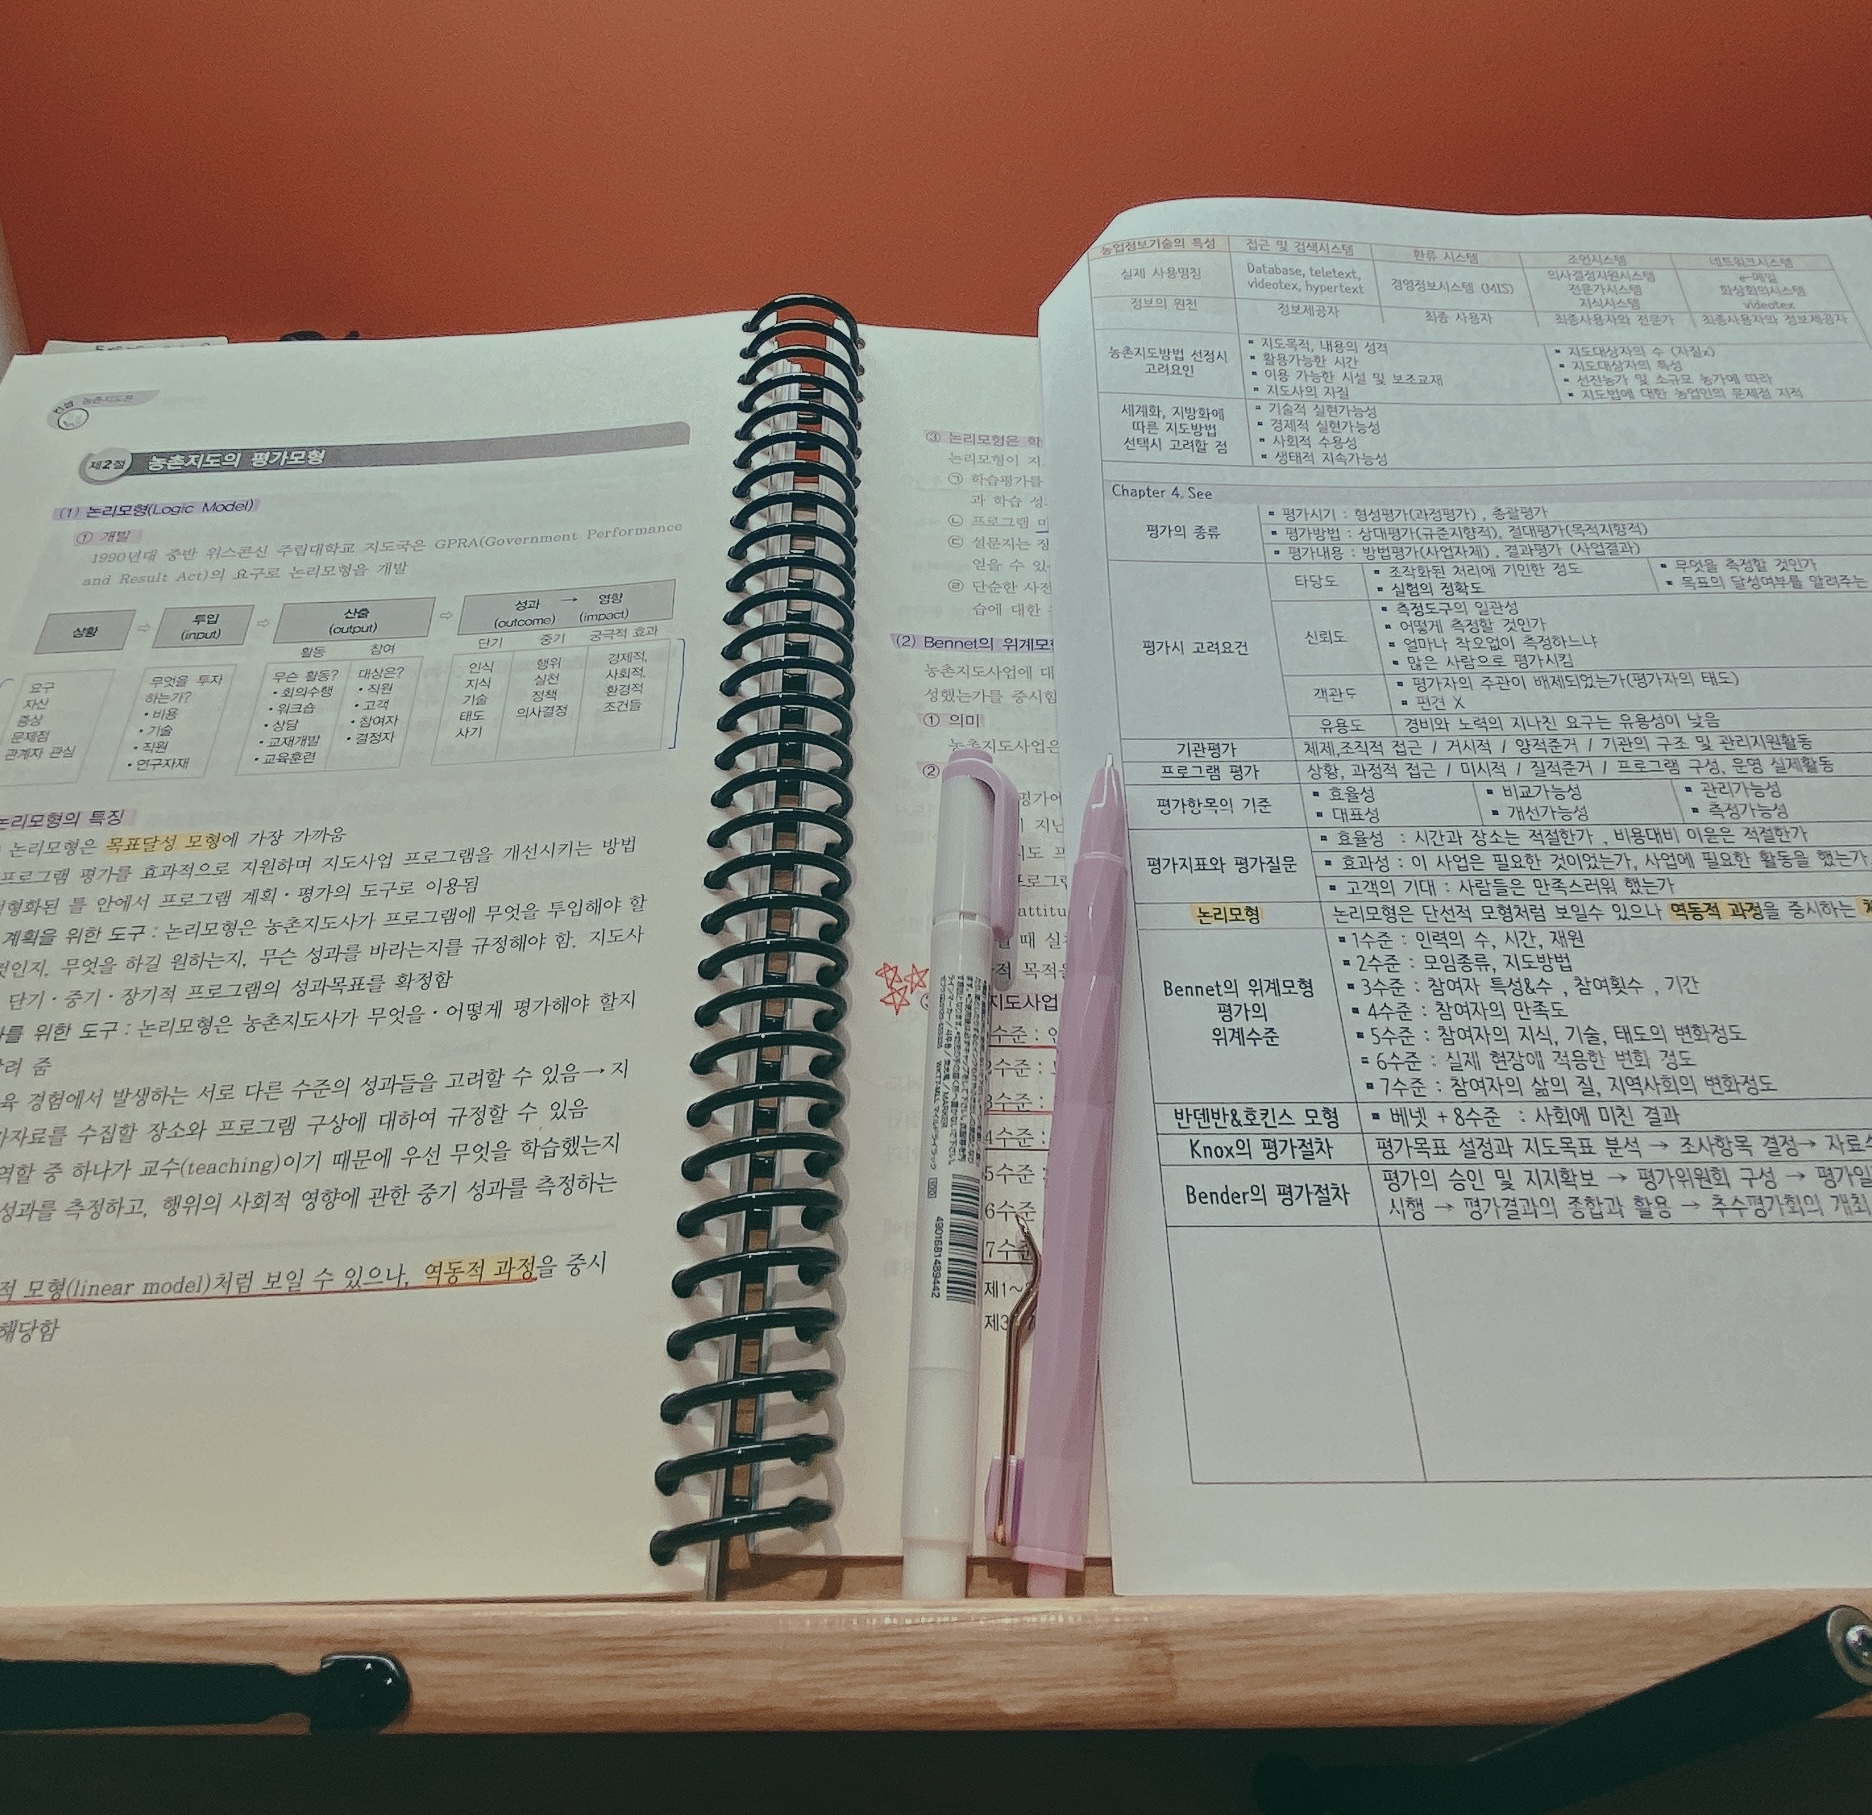 농촌지도론
제2절 농촌지도의 평가모형
(1) 논리모형(Logic Model)
① 개발
1990년대 중반 위스콘신 주립대학교 지도국은 GPRA(Government Performance
and Result Act)의 요구로 논리모형을 개발
상황 ⇨ 투입 (input) ⇨ 산출 (output) ⇨ 성과 (outcome) → 영향 (impact)
활동 참여 단기 중기 궁극적 효과
요구
자산
증상
문제점
관계자 관심
무엇을 투자
하는가?
• 비용
• 기술
• 직원
• 연구자재
무슨 활동?
• 회의수행
• 워크숍
• 상담
• 교재개발
• 교육훈련
대상은?
• 직원
• 고객
• 참여자
• 결정자
인식
지식
기술
태도
사기
행위
실천
정책
의사결정
경제적,
사회적,
환경적
조건들
논리모형의 특징
논리모형은 목표달성 모형에 가장 가까움
프로그램 평가를 효과적으로 지원하며 지도사업 프로그램을 개선시키는 방법
형화된 틀 안에서 프로그램 계획·평가의 도구로 이용됨
계획을 위한 도구 : 논리모형은 농촌지도사가 프로그램에 무엇을 투입해야 할
것인지, 무엇을 하길 원하는지, 무슨 성과를 바라는지를 규정해야 함. 지도사
단기·중기·장기적 프로그램의 성과목표를 확정함
를 위한 도구 : 논리모형은 농촌지도사가 무엇을·어떻게 평가해야 할지
려 줌
육 경험에서 발생하는 서로 다른 수준의 성과들을 고려할 수 있음→ 지
자료를 수집할 장소와 프로그램 구상에 대하여 규정할 수 있음
역할 중 하나가 교수(teaching)이기 때문에 우선 무엇을 학습했는지
성과를 측정하고, 행위의 사회적 영향에 관한 중기 성과를 측정하는
적 모형(linear model)처럼 보일 수 있으나, 역동적 과정을 중시
해당함
③ 논리모형은 학
논리모형이 지
㉠ 학습평가를
과 학습 성
㉡ 프로그램
㉢ 설문지는
얻을 수 있
㉣ 단순한 사전
습에 대한
(2) Bennet의 위계모형
농촌지도사업에 대
성했는가를 중시함
① 의미
농촌지도사업은
②
평가에
지난
프로그
attitu
때 실
적 목적을
지도사업
수준 :
수준 :
수준 :
4수준 :
5수준 :
6수준
7수준
제1~
제3
4901681489442
농업정보기술의 특성 접근 및 검색시스템 환류 시스템 조언시스템 네트워크시스템
실제 사용명칭 Database, teletext, videotex, hypertext 경영정보시스템 (MIS) 의사결정지원시스템 전문가시스템 지식시스템 e-메일 화상회의시스템 videotex
정보의 원천 정보제공자 최종 사용자 최종사용자와 전문가 최종사용자와 정보제공자
농촌지도방법 선정시
고려요인
▪ 지도목적, 내용의 성격
▪ 활용가능한 시간
▪ 이용 가능한 시설 및 보조교재
▪ 지도사의 자질
▪ 지도대상자의 수 (자질x)
▪ 지도대상자의 특성
▪ 선진농가 및 소규모 농가에 따라
▪ 지도법에 대한 농업인의 문제점 지적
세계화, 지방화에
따른 지도방법
선택시 고려할 점
▪ 기술적 실현가능성
▪ 경제적 실현가능성
▪ 사회적 수용성
▪ 생태적 지속가능성
Chapter 4. See
평가의 종류
▪ 평가시기 : 형성평가(과정평가) , 총괄평가
▪ 평가방법 : 상대평가(규준지향적), 절대평가(목적지향적)
▪ 평가내용 : 방법평가(사업자체) , 결과평가 (사업결과)
평가시 고려요건
타당도
▪ 조작화된 처리에 기인한 정도
▪ 실험의 정확도
▪ 무엇을 측정할 것인가
▪ 목표의 달성여부를 알려주는
신뢰도
▪ 측정도구의 일관성
▪ 어떻게 측정할 것인가
▪ 얼마나 착오없이 측정하느냐
▪ 많은 사람으로 평가시킴
객관도
▪ 평가자의 주관이 배제되었는가(평가자의 태도)
▪ 편견 X
유용도 경비와 노력의 지나친 요구는 유용성이 낮음
기관평가 체제,조직적 접근 / 거시적 / 양적준거 / 기관의 구조 및 관리지원활동
프로그램 평가 상황, 과정적 접근 / 미시적 / 질적준거 / 프로그램 구성, 운영 실제활동
평가항목의 기준
▪ 효율성 ▪ 비교가능성 ▪ 관리가능성
▪ 대표성 ▪ 개선가능성 ▪ 측정가능성
평가지표와 평가질문
▪ 효율성 : 시간과 장소는 적절한가 , 비용대비 이윤은 적절한가
▪ 효과성 : 이 사업은 필요한 것이었는가, 사업에 필요한 활동을 했는가
▪ 고객의 기대 : 사람들은 만족스러워 했는가
논리모형 논리모형은 단선적 모형처럼 보일수 있으나 역동적 과정을 중시하는
Bennet의 위계모형
평가의
위계수준
▪ 1수준 : 인력의 수, 시간, 재원
▪ 2수준 : 모임종류, 지도방법
▪ 3수준 : 참여자 특성&수 , 참여횟수 , 기간
▪ 4수준 : 참여자의 만족도
▪ 5수준 : 참여자의 지식, 기술, 태도의 변화정도
▪ 6수준 : 실제 현장에 적용한 변화 정도
▪ 7수준 : 참여자의 삶의 질, 지역사회의 변화정도
반덴반&호킨스 모형 ▪ 베넷 +8수준 : 사회에 미친 결과
Knox의 평가절차 평가목표 설정과 지도목표 분석 → 조사항목 결정→ 자료
Bender의 평가절차 평가의 승인 및 지지확보 → 평가위원회 구성 → 평가일
시행 → 평가결과의 종합과 활용 → 추수평가회의 개최